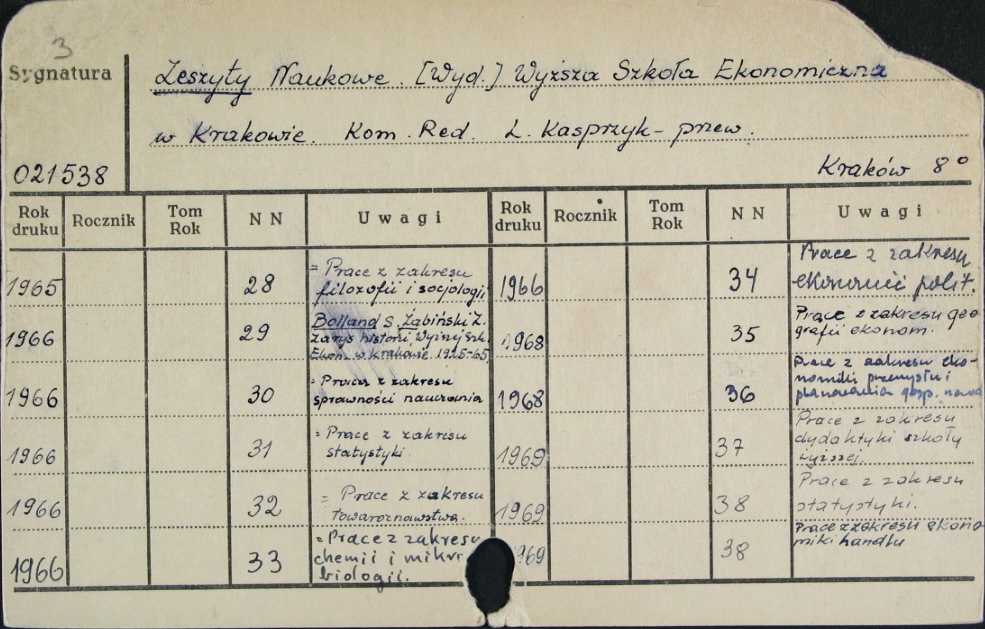 3
Sygnatura
Zeszyty Naukowe. [Wyd.] Wyższa Szkoła Ekonomiczna
w Krakowie. Kom. Red. L. Kasprzyk - przew.
021538
Kraków 8°
Rok druku Rocznik Tom Rok NN Uwagi Rok druku Rocznik Tom Rok NN Uwagi
1965 28 = Prace z zakresu
filozofii i socjologii
1966 29 Bolland S. Żabiński Z.
Zarys historii Wyższej Szk.
Ekon. w Krakowie. 1925-65
1966 30 = Prace z zakresu
sprawności nauczania
1966 31 = Prace z zakresu
statystyki
1966 32 = Prace z zakresu
towaroznawstwa.
1966 33 = Prace z zakresu
chemii i mikro
biologii.
1966 34 Prace z zakresu
ekonomii polit.
1968 35 Prace z zakresu geo
grafii ekonom.
1968 36 Prace z zakresu eko-
nomiki przemysłu i
planowania gosp. narod
1969 37 Prace z zakresu
dydaktyki szkoły
wyższej.
1969 38 Prace z zakresu
statystyki.
1969 38 Prace z zakresu ekono
miki handlu